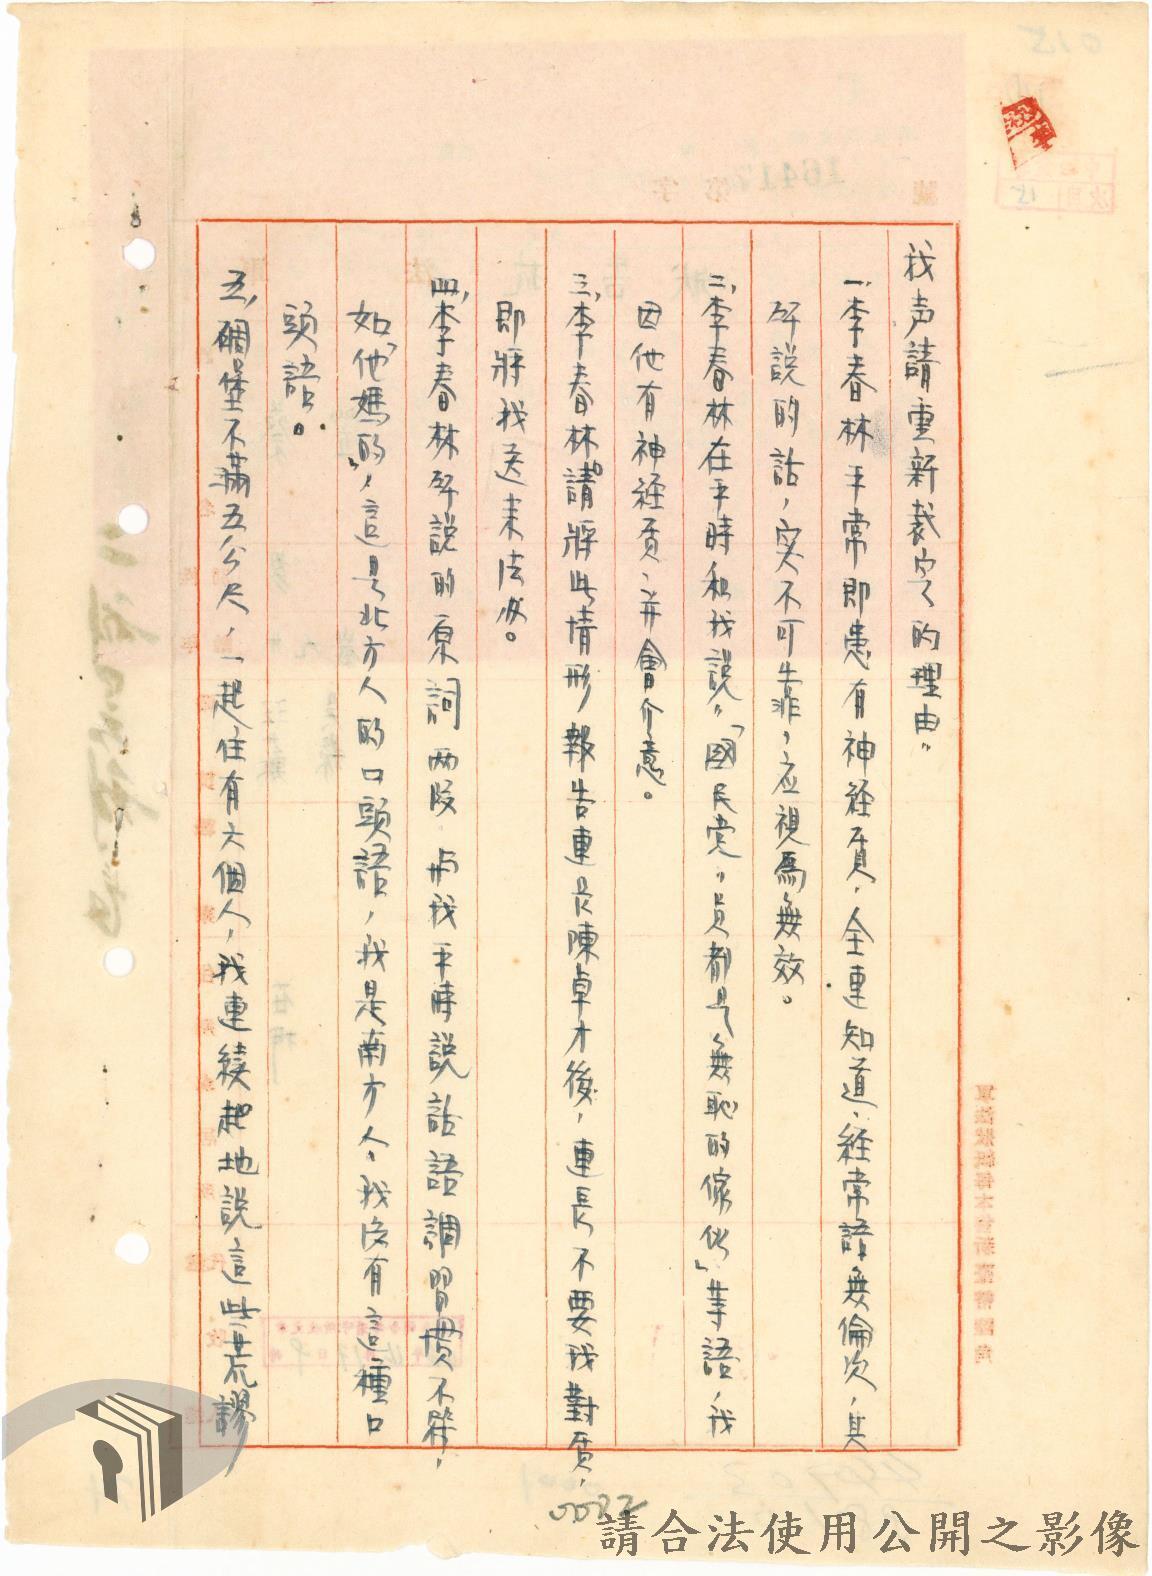 我声請重新裁定的理由。
一、李春林平常即患有神経质，全連知道，経常語無倫次，其
所説的話，实不可靠，应視爲無效。
二、李春林在平時和我說，「國民党，員都是無恥的傢伙」等語，我
因他有神経质，并會介意。
三、李春林「請將此情形報告連長陳卓才後，連長不要我對质，
即將我送来法办。
四、李春林所説的原詞两段，与我平時説話語調習慣不符，
如「他媽的」，這是北方人的口頭語，我是南方人，我没有這種口
頭語。
五、碉堡不滿五公尺，一起住有六個人，我連續起地説這些荒謬，
0032
請合法使用公開之影像